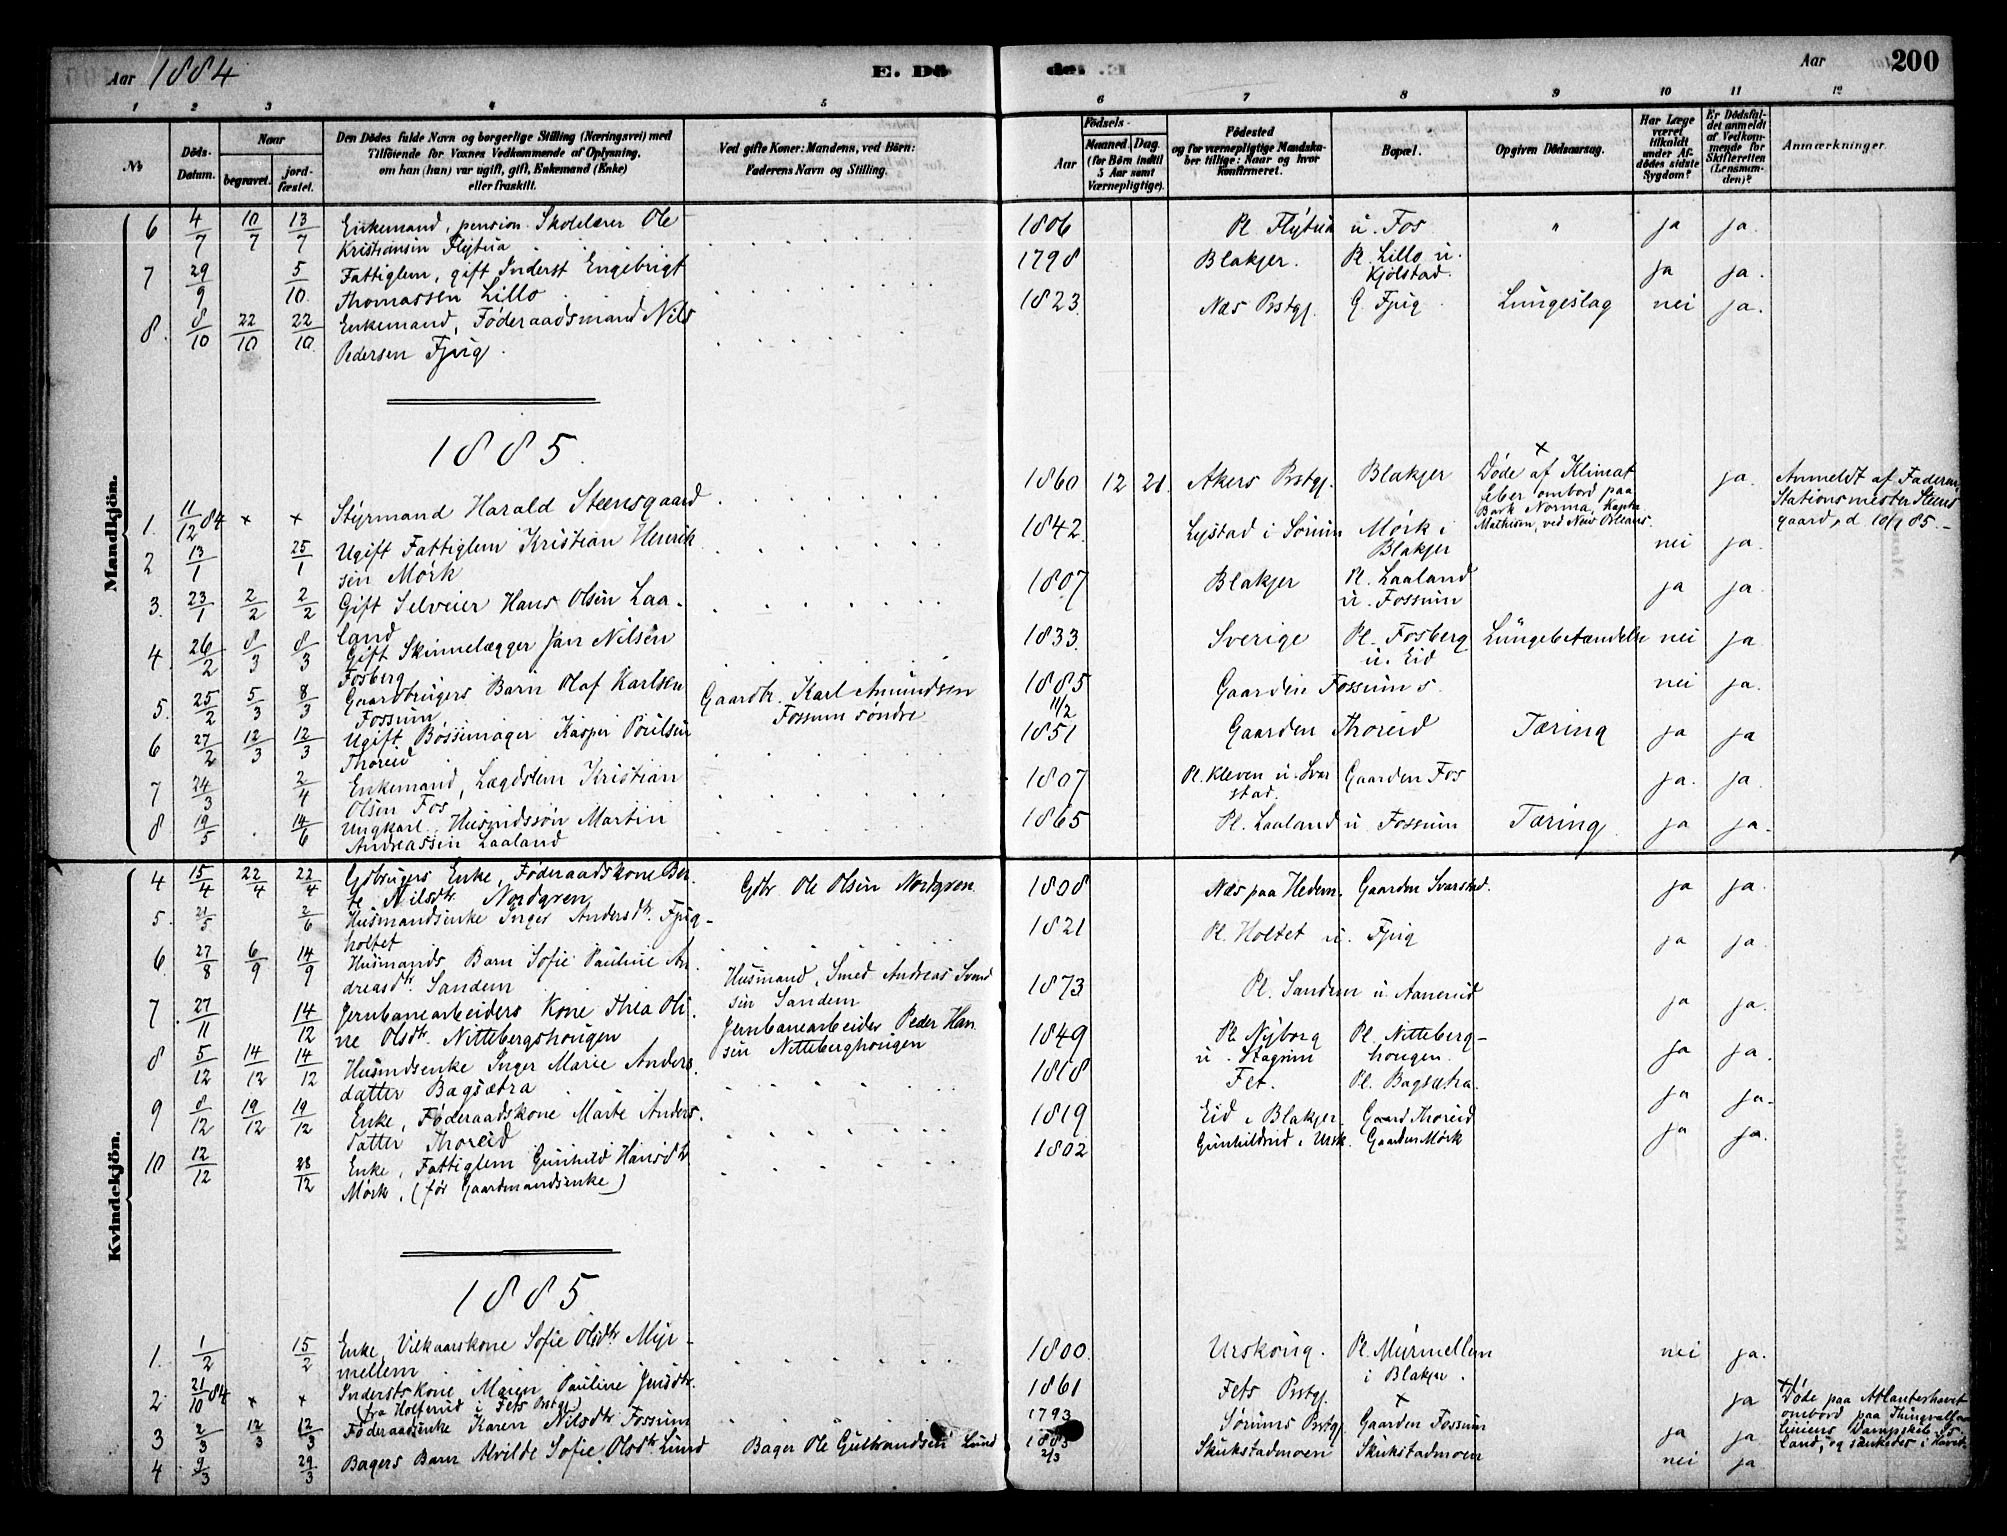 Aar 1884
E. Dö-
de.
Aar
200
1 2 3 4 5 6 7 8 9 10 11 12
№
Döds-Datum.
Naar
begravet.
jord-fæstet.
Den Dödes fulde Navn og borgerlige Stilling (Næringsvei) med
Tilföiende for Voxnes Vedkommende af Oplysning,
om han (hun) var ugift, gift, Enkemand (Enke)
eller fraskilt.
Ved gifte Koner: Mandens, ved Börn:
Faderens Navn og Stilling.
Födsels-
Aar
Maaned. Dag.
(for Börn indtil
5 Aar samt
Værnepligtige).
Födested
og for værnepligtige Mandska-
ber tillige: Naar og hvor
konfirmeret.
Bopæl.
Opgiven Dödsaarsag.
Har Læge
været
tilkaldt
under Af-
dödes sidste
Sygdom?
Er Dödsfal-
det anmeldt
af Vedkom-
mende for
Skifteretten
(Lensman-
den)?
Anmærkninger.
Mandkjön.
6 4/7 10/7 13/7 Enkemand, pension. Skolelærer Ole
Kristiansen Flytua 1806 Pl. Flytua u. Fos " ja ja.
7 29/9 5/10 Fattiglem, gift Inderst Engebrigt
Thomassen Lillo 1798 Blakjer. Pl. Lillo u.
Kjölstad. ja ja.
8. 8/10 22/10 22/10 Enkemand, Föderaadsmand Nils
Pedersen Fjug. 1823 Næs Prstgj. G. Fjug Lungeslag nei ja.
1885.
1. 11/12 84 × × Styrmand Harald Steensgaard 1860 12 21. Akers Prstgj. Blakjer ×
Døde af Klimat
feber ombord paa
Bark Norma, Kaptn
Mathisen, ved New Orleans. ja. Anmeldt af Faderen,
Stationsmester Steens
gaard, d. 10/1 85 -
2 13/1 25/1 Ugift Fattiglem Kristian Henrik
sen Mörk 1842 Lystad i Sörum Mörk i
Blakjer nei ja.
3. 23/1 2/2 2/2 Gift Selveier Hans Olsen Laa-
land 1807 Blakjer Pl. Laaland
u. Fossum ja ja.
4. 26/2 8/3 8/3 Gift Skinnelægger Jan Nilsen
Fosberg 1833 Sverige Pl. Fosberg
u. Eid Lungebetændelse nei ja
5. 25/2 5/3 8/3 Gaardbrugers Barn Olaf Karlsen
Fossum Gaardbr. Karl Amundsen
Fossum söndre 1885
11/2 Gaarden Fossum s. nei ja.
6 27/2 12/3 12/3 Ugift Bössemager Kasper Poulsen
Thoreid 1851 Gaarden Thoreid Tæring ja ja
7 24/3 2/4 Enkemand, Lægdslem Kristian
Olsen Fos 1807 Pl. Kleven u. Svar
stad. Gaarden Fos ja. ja.
8. 19/5 14/6 Ungkarl, Husmdssøn Martin
Andreassen Laaland 1865 Pl. Laaland u Fossum Tæring ja ja.
Kvindekjön.
4 15/4 22/4 22/4 Gdbrugers Enke, Föderaadskone Ber-
te Nilsdtr. Nordgren Gdbr Ole Olsen Nordgren 1808 Næs paa Hedem. Gaarden Svarstad. ja ja.
5. 21/5 2/6 Husmandsenke Inger Andersdtr. Fjug-
holtet 1821 Pl. Holtet u. Fjug ja ja.
6. 27/8 6/9 14/9 Husmands Barn Sofie Pauline An-
dreasdtr. Sandem Husmand, Smed Andreas Svend
sen Sandem 1873 Pl. Sandem u Aanerud ja ja.
7. 27/11 14/12 Jernbanearbeiders Kone Thea Oli
ne Olsdtr. Nittebergshougen Jernbanearbeider Peder Han
sen Nitteberghougen 1849 Pl. Nyborg
u. Pl. Nitteberg-
hougen. ja ja.
8 5/12 14/12 14/12 Husmdsenke Inger Marie Anders.
datter Bagsætra 1818 Fet. Pl. Bagsætra. ja ja.
9 8/12 19/12 19/12 Enke, Föderaadskone Marte Anders.
datter Thoreid 1819 Eid i Blakjer Gaard Thoreid ja ja.
10 12/12 28/12 Enke, Fattiglem Gunhild Hansdtr
Mörk, (för Gaardmandsenke) 1802 Gunhildrud i Ursk. Gaarden Mörk
1885
1. 1/2 15/2 Enke, Vilkaarskone Sofie Olsdtr. Myr-
mellem 1800 Urskoug. Pl. Murmellem
i Blakjer. nei ja.
2. 21/10 84 × × Inderstskone Maren Pauline Jensdtr.
fra Holterud i Fets Prstgj. 1861 Fets Prstgj. × ja × Døde paa Atlanterhavet
ombord paa Thingvalla
liniens Dampskib Is-
land, og sænkedes i Havet.
3 2/3 12/3 12/3 Föderaadsenke Karen Nilsdtr. Fossum 1793 Sörums Prstgj. Gaarden Fossum ja ja
4. 9/3 29/3 Bagers Barn Alvilde Sofie Olsdtr Lund Bager Ole Gulbrandsen Lund 1885
2/3 Skukstadmoen Skukstadmoen nei ja